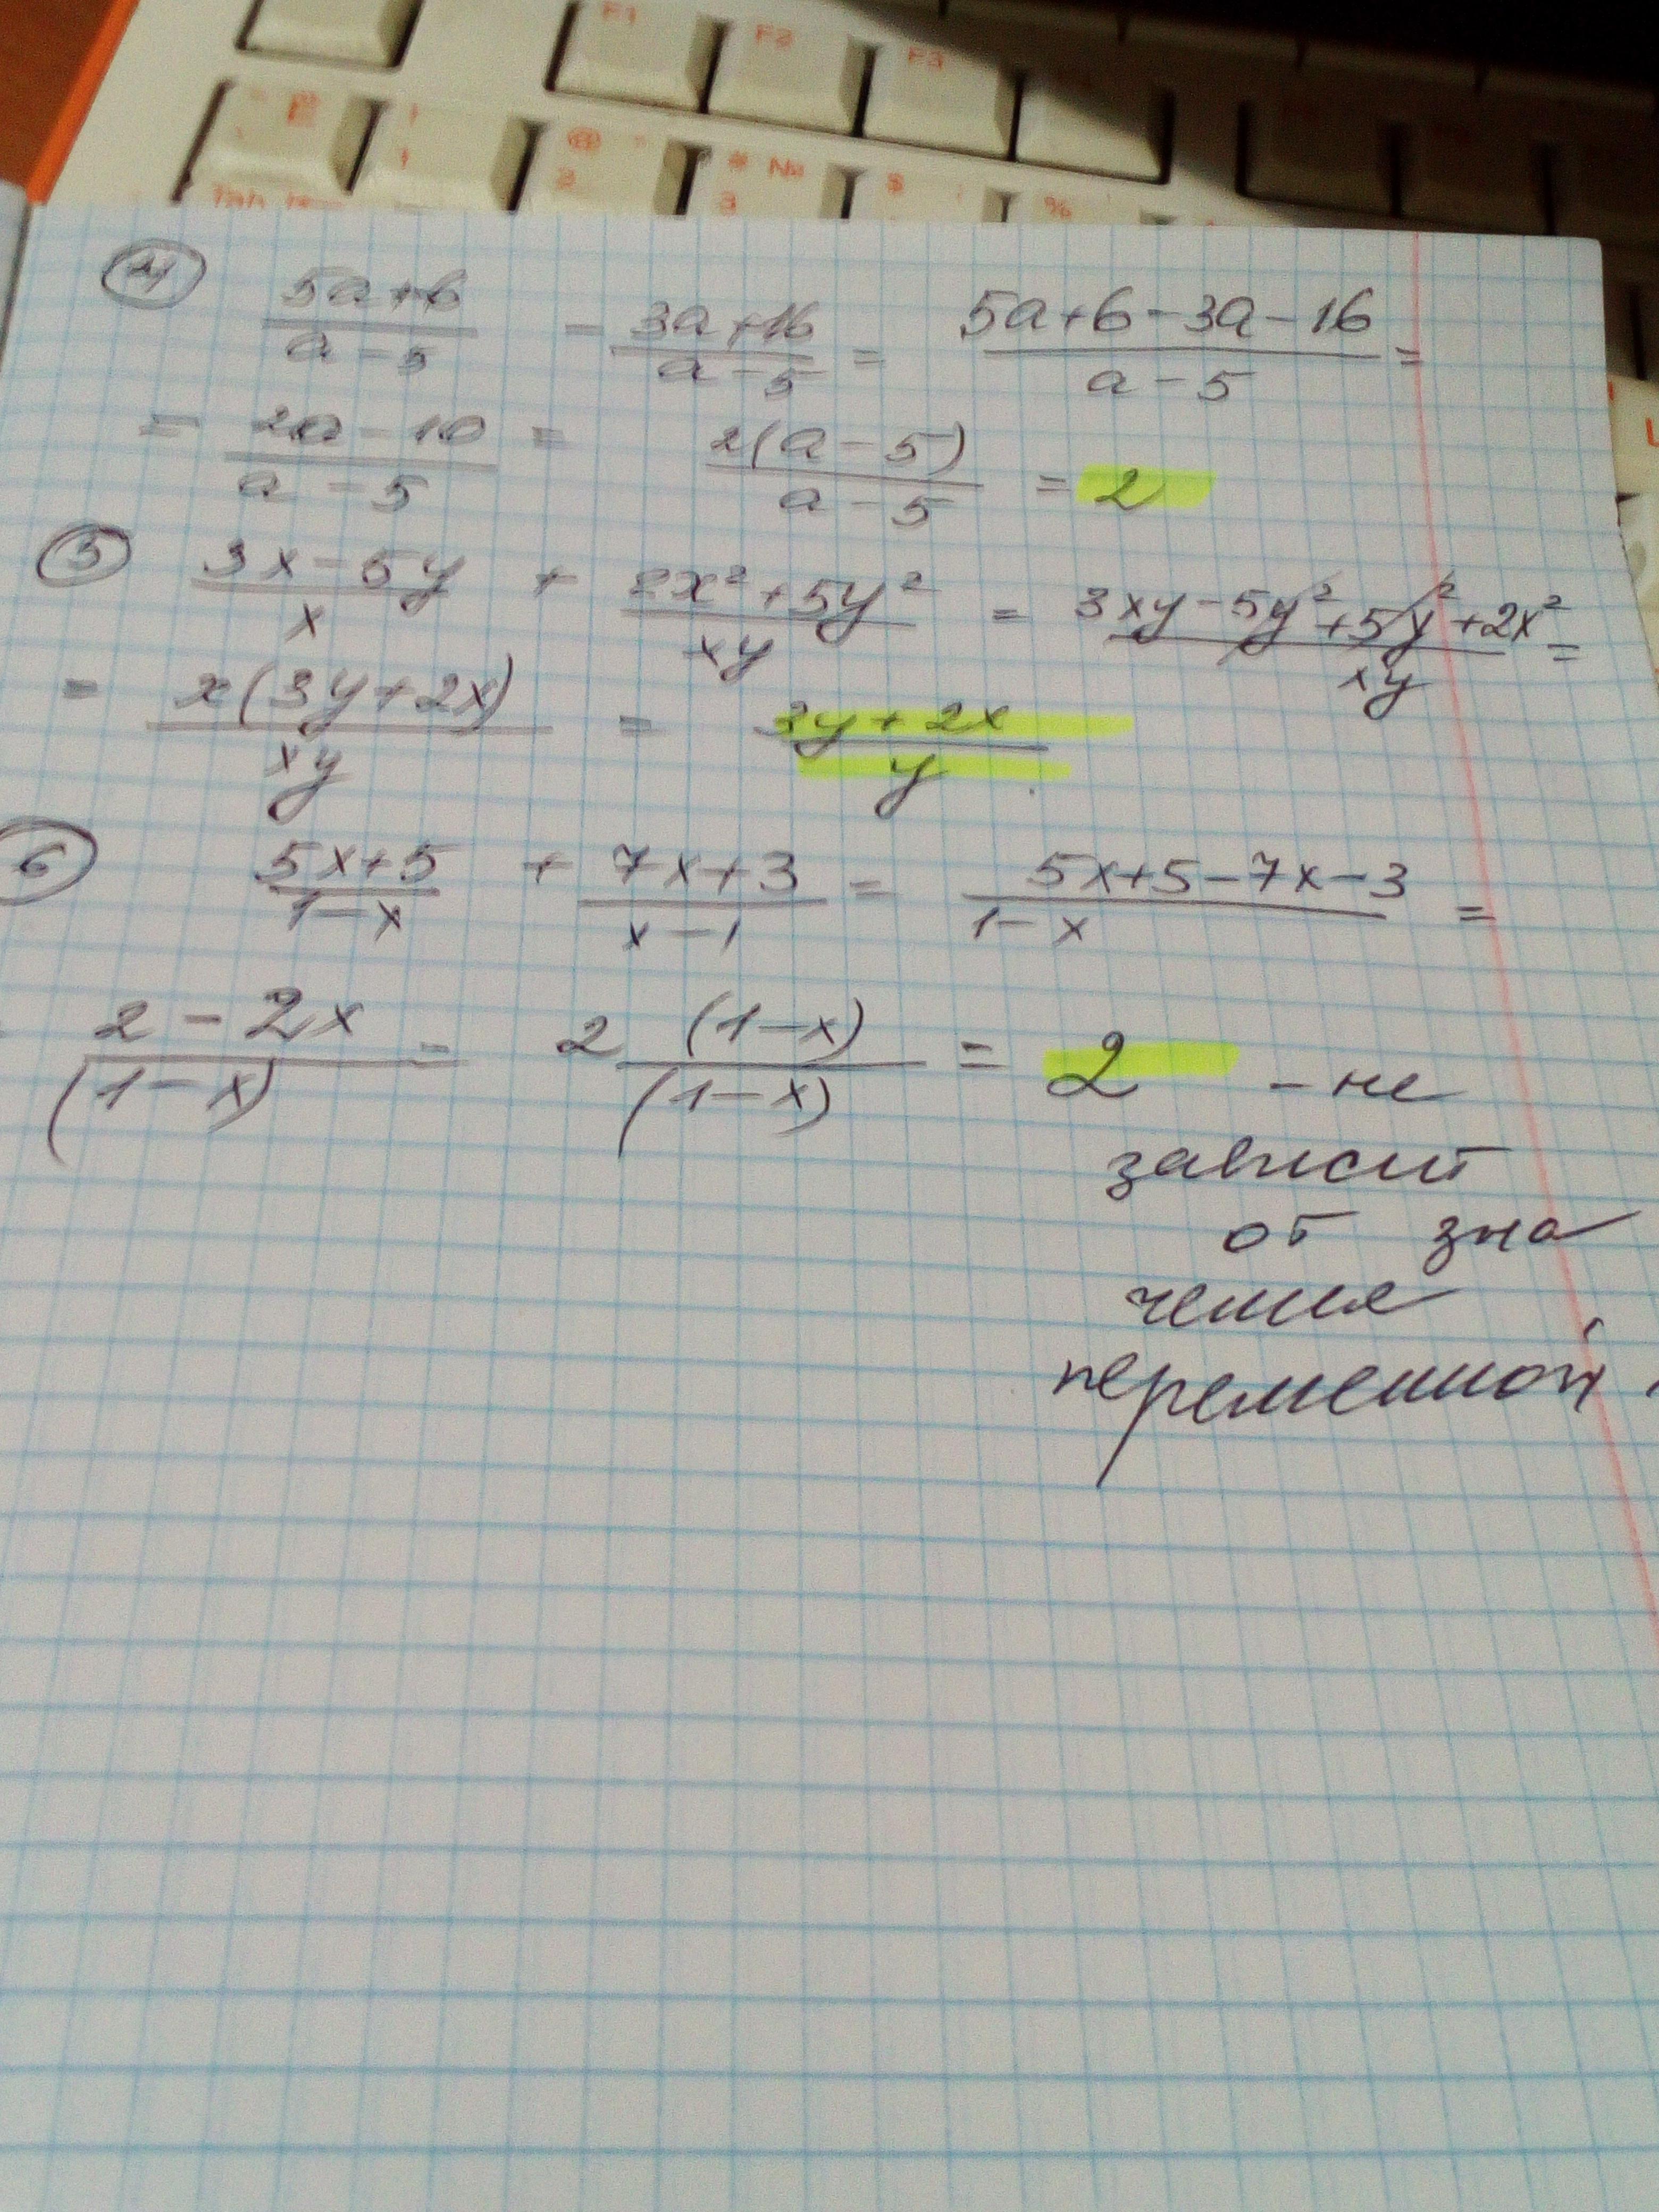 F1 F2 F3
1 @ " # № $ ; %
1 2 3
④ (5a+6)/(a-5) - (3a+16)/(a-5) = (5a+6-3a-16)/(a-5) =
= (2a-10)/(a-5) = 2(a-5)/(a-5) = 2
⑤ (3x-5y)/x + (2x²+5y²)/xy = (3xy-5y²+5y²+2x²)/xy =
= x(3y+2x)/xy = (3y+2x)/y
⑥ (5x+5)/(1-x) + (7x+3)/(x-1) = (5x+5-7x-3)/(1-x) =
(2-2x)/(1-x) = 2 (1-x)/(1-x) = 2 - не
зависит
от зна
чения
переменной.